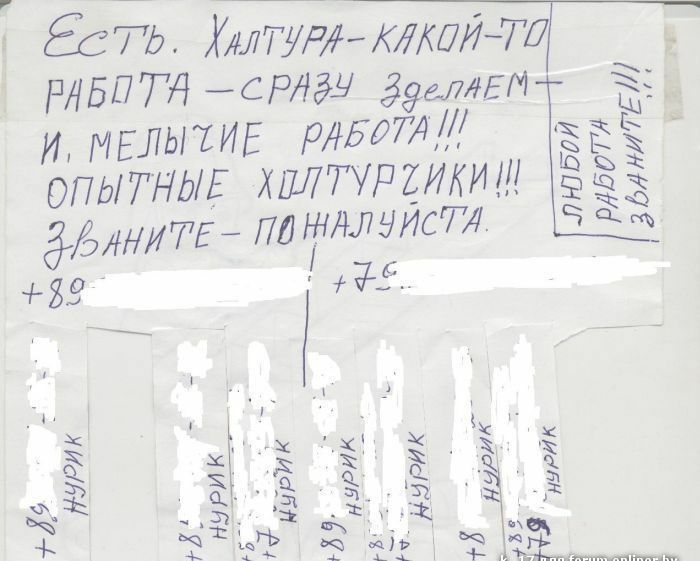 Есть. Халтура-какой-то
работа - сразу зделаем -
и. мелычие работа!!!
опытные холтурчики!!!
званите - пожалуйста.
любой
работа
званите!!!
+89
+79
+89
нурик
+89
нурик
нурик
+89
нурик
нурик
+8
нурик
+89
нурик